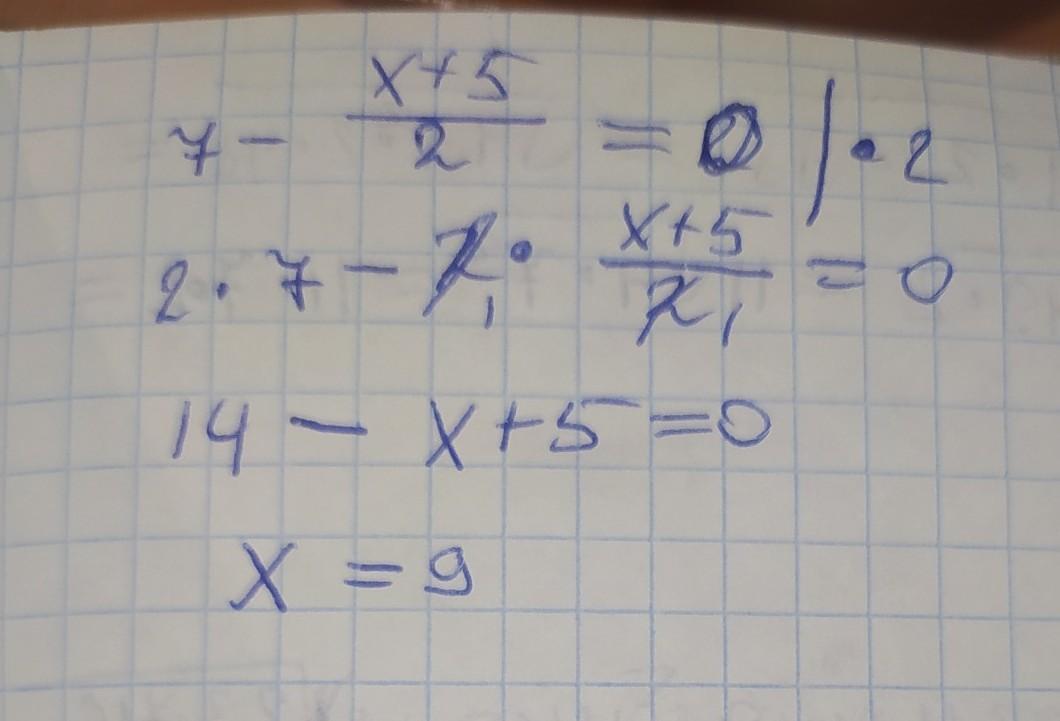 7 - \frac{x+5}{2} = 0 | • 2
2 · 7 - 2 1 • \frac{x+5}{2 1} = 0
14 - x + 5 = 0
x = 9